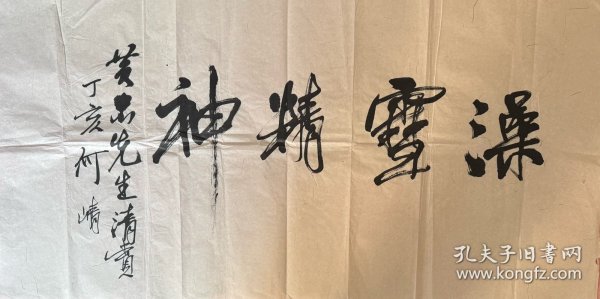 澡雪精神
黄先生清賞
丁亥何崝
孔夫子旧书网
www.kongfz.com